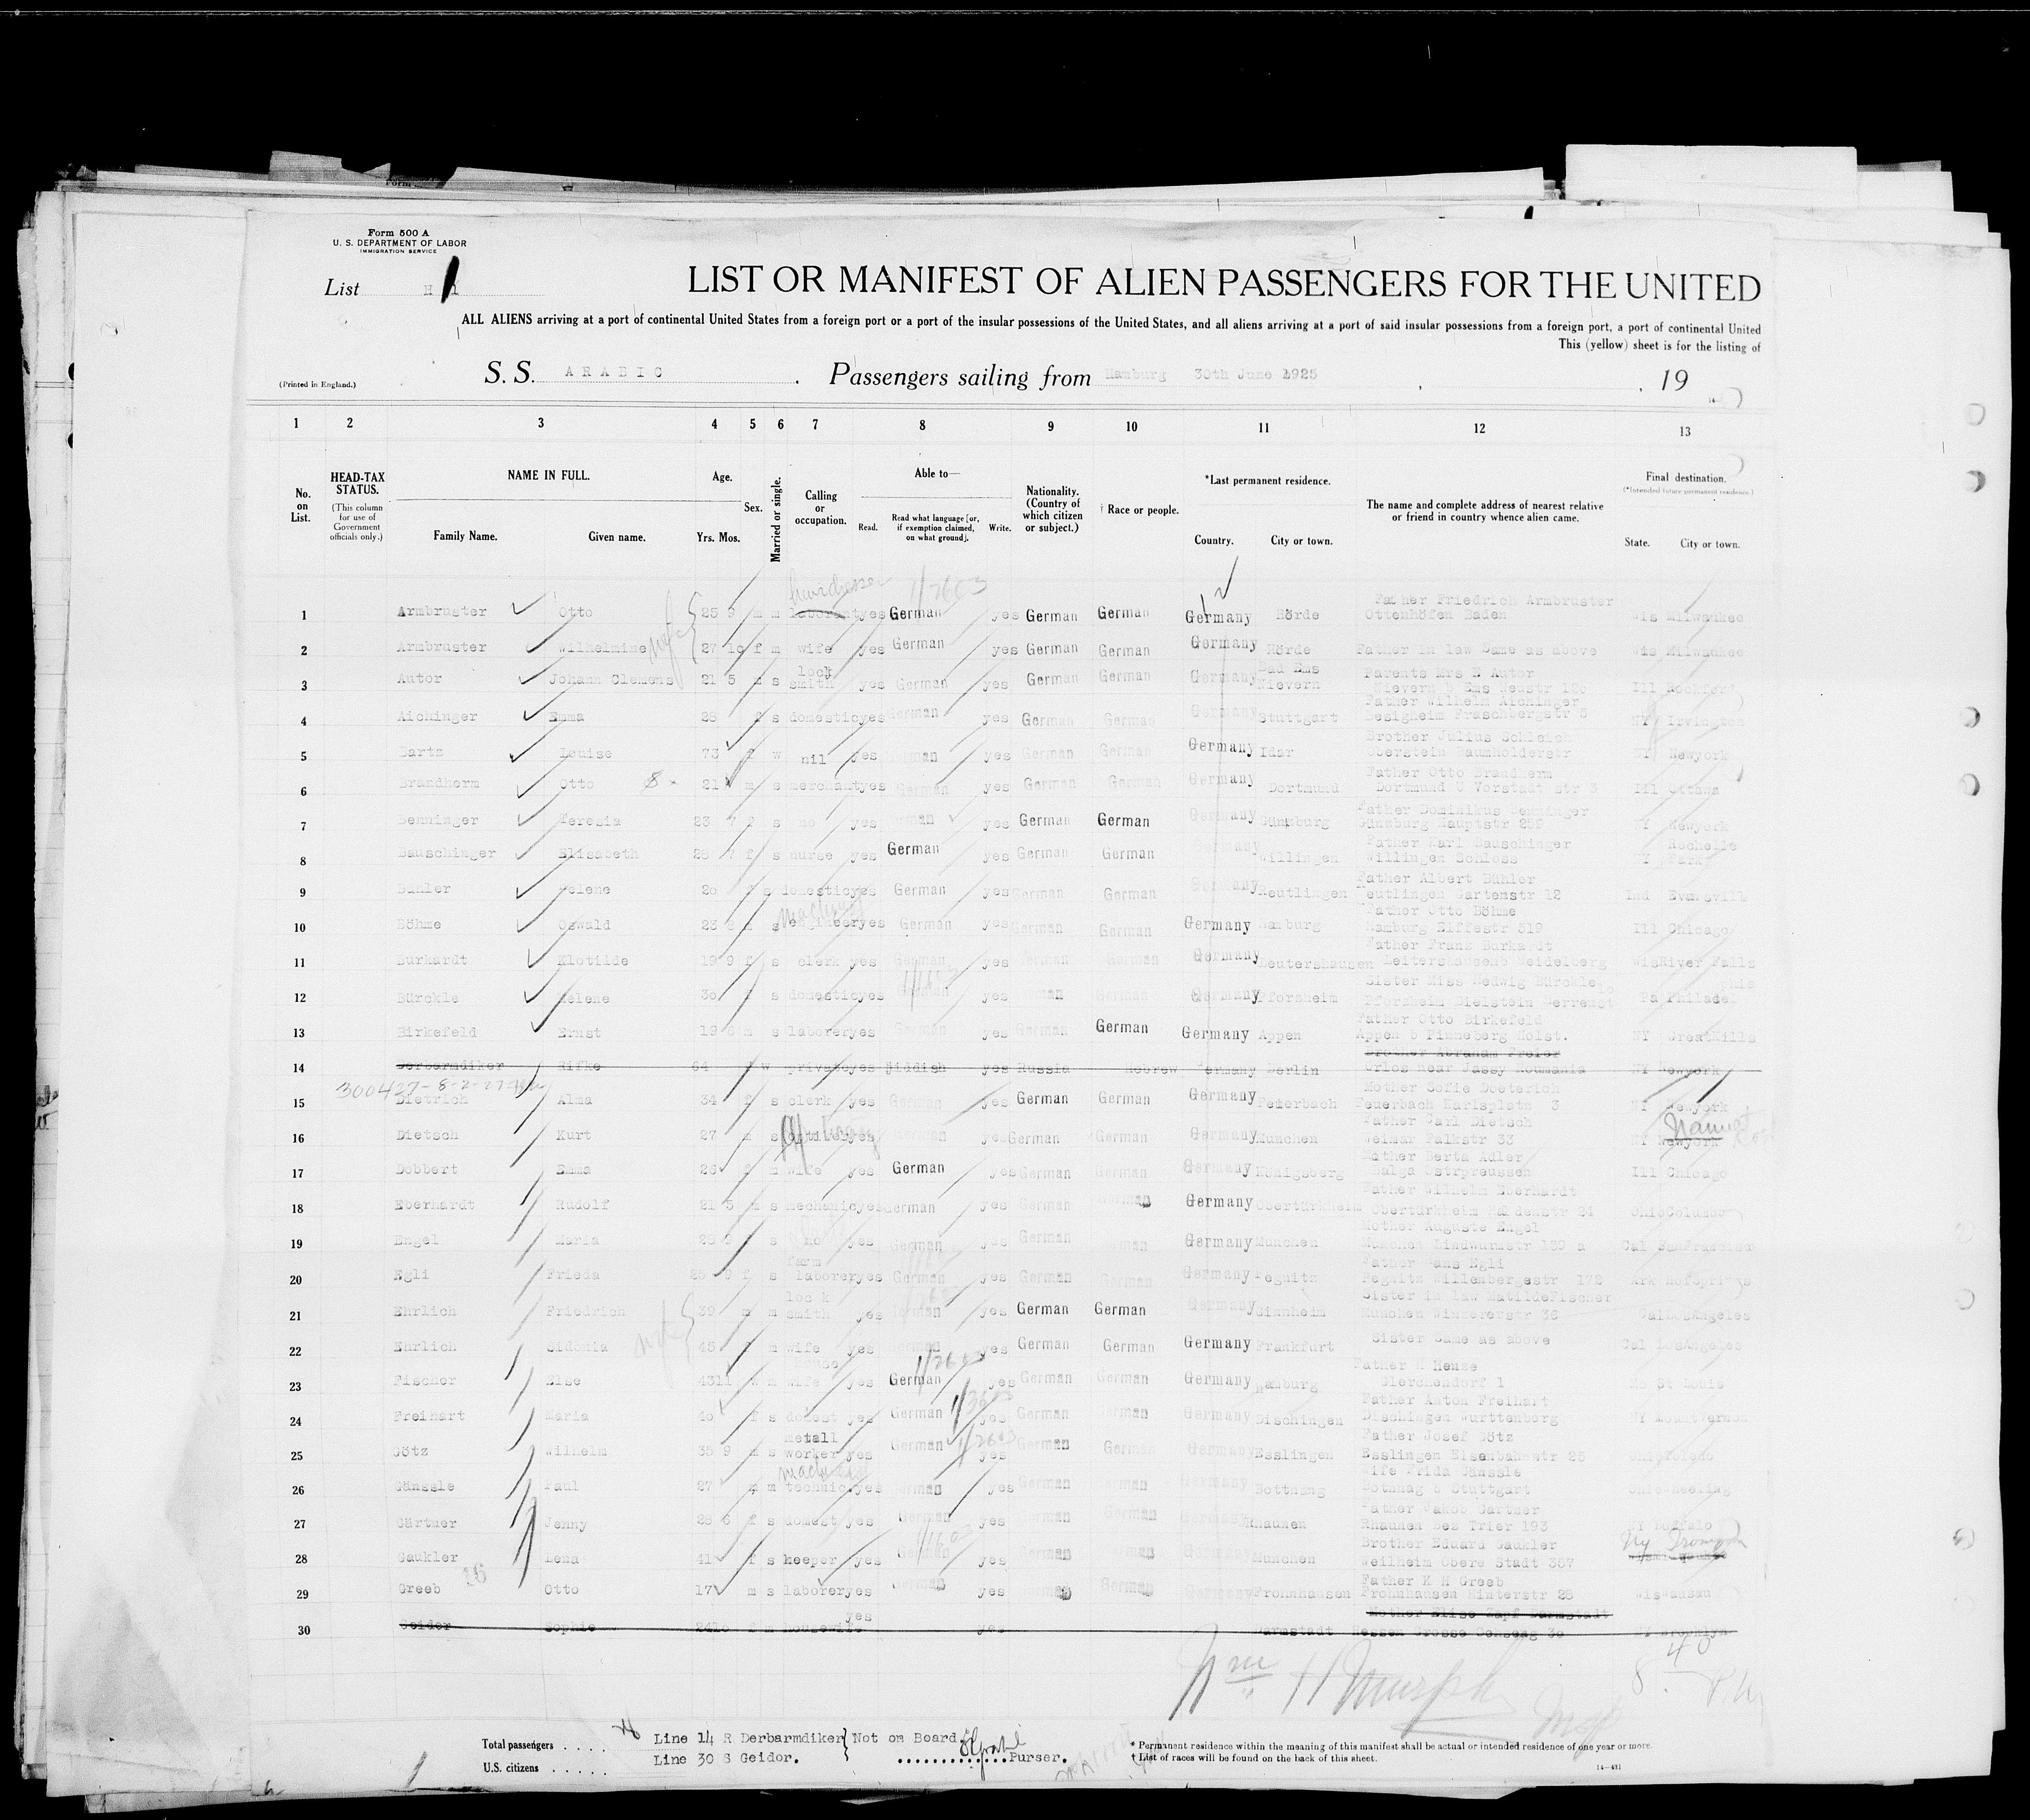 Form 500 A
U. S. DEPARTMENT OF LABOR
IMMIGRATION SERVICE
List H 1
LIST OR MANIFEST OF ALIEN PASSENGERS FOR THE UNITED
ALL ALIENS arriving at a port of continental United States from a foreign port or a port of the insular possessions of the United States, and all aliens arriving at a port of said insular possessions from a foreign port, a port of continental United
This (yellow) sheet is for the listing of
(Printed in England.)
S. S. ARABIC. Passengers sailing from Hamburg 30th June 1925, 19
1 2 3 4 5 6 7 8 9 10 11 12 13
No. on List.
HEAD-TAX STATUS.
(This column for use of Government officials only.)
NAME IN FULL.
Family Name. Given name.
Age.
Yrs. Mos.
Sex.
Married or single.
Calling or occupation.
Able to—
Read. Read what language [or, if exemption claimed, on what ground]. Write.
Nationality. (Country of which citizen or subject.)
† Race or people.
*Last permanent residence.
Country. City or town.
The name and complete address of nearest relative or friend in country whence alien came.
Final destination.
(*Intended future permanent residence.)
State. City or town.
1 Armbruster Otto 25 9 m m yes German yes German German Germany Hörde Father Friedrich Armbruster Ottenhöfen Baden Wis Milwaukee
2 Armbruster Wilhelmine 27 10 f m wife yes German yes German German Germany Hörde Father in law Same as above Wis Milwaukee
3 Autor Johann Clemens 21 5 m s lock smith yes German yes German German Germany Bad Ems Nievern Parents Mrs E Autor Nievern b Ems Ill Rockford
4 Aichinger Emma 28 f s domestic yes German yes German German Germany Stuttgart Father Wilhelm Aichinger Besigheim Fraschbergstr 5 NY Irvington
5 Bartz Louise 73 f w nil yes German yes German German Germany Idar Brother Julius Schleich Oberstein Baumholderstr NY Newyork
6 Brandherm Otto 21 m s merchant yes German yes German German Germany Dortmund Father Otto Brandherm Dortmund U Vorstadt str 3 Ill Ottawa
7 Benninger Teresia 23 7 f s no yes German yes German German Germany Günzburg Father Dominikus Benninger Günzburg Hauptstr 259 NY Newyork
8 Bauschinger Elisabeth 28 7 f s nurse yes German yes German German Germany Willingen Father Karl Bauschinger Willingen Schloss NY Rochelle Park
9 Bühler Helene 20 f s domestic yes German yes German German Germany Reutlingen Father Albert Bühler Reutlingen Gartenstr 12 Ind Evansvill
10 Böhme Oswald 23 s engineer yes German yes German German Germany Hamburg Father Otto Böhme Hamburg Eiffestr 519 Ill Chicago
11 Burkardt Klotilde 19 9 f s clerk yes German yes German German Germany Leutershausen Father Franz Burkardt Leitershausen b Heidelberg Wis River Falls
12 Bürckle Helene 30 f s domestic yes German yes German German Germany Pforzheim Sister Miss Hedwig Bürckle Pforzheim Pa Philadelphia
13 Birkefeld Ernst 19 m s laborer yes German yes German German Germany Appen Father Otto Birkefeld Appen b Pinneberg Holst. NY GreatKills
14 Derbarmdiker Rifke 64 f w private yes Yiddish yes Russia Hebrew Germany Berlin near Jassy Roumania NY Newyork
300427-8-2-27
15 Dietrich Alma 34 f s clerk yes German yes German German Germany Feuerbach Mother Sofie Dieterich Feuerbach Karlsplatz 3 NY Newyork
16 Dietsch Kurt 27 m s yes German yes German German Germany Munchen Father Carl Dietsch Weimar Falkstr 33 NY Newyork
17 Dobbert Emma 26 f m wife yes German yes German German Germany Königsberg Mother Berta Adler Balga Ostrpreussen Ill Chicago
18 Eberhardt Rudolf 21 5 m s mechanic yes German yes German German Germany Obertürkheim Father Wilhelm Eberhardt Obertürkheim 24 Ohio Columbus
19 Engel Maria 28 f s no yes German yes German German Germany Munchen Mother Auguste Engel Munchen Lindwurmstr 189 a Cal SanFrancisco
20 Egli Frieda 25 9 f s farm laborer yes German yes German German Germany Pegnitz Father Hans Egli Pegnitz Willenbergestr 172 Ark HotSprings
21 Ehrlich Friedrich 39 m m lock smith yes German yes German German Germany Sinnheim Sister in law MatildeFischer Munchen Winzererstr 36 Cal LosAngeles
22 Ehrlich Sidonia 45 f m wife yes German yes German German Germany Frankfurt Sister Same as above Cal LosAngeles
23 Fischer Else 43 11 m wife yes German yes German German Germany Hamburg Father H Heuse Clerchendorf 1 Mo St Louis
24 Freihart Maria 40 f s domest yes German yes German German Germany Dischingen Father Anton Freihart Dischingen Wurttenberg NY MountVernon
25 Götz Wilhelm 35 9 m s metall worker yes German yes German German Germany Esslingen Father Josef Götz Esslingen Eisenbahnstr 25 Ohio Toledo
26 Gänssle Paul 27 m m technic yes German yes German German Germany Bottnang Wife Frida Gänssle Botnnag b Stuttgart
27 Gärtner Jenny 28 6 f s domest yes German yes German German Germany Rhaunen Father Jakob Gärtner Rhaunen Bez Trier 193 NY Buffalo
28 Gaukler Lena 41 f s keeper yes German yes German German Germany Munchen Brother Eduard Gaukler Weilheim Obere Stadt 357 Ny
29 Greeb 16 Otto 17 m s laborer yes German yes German German Germany Frohnhausen Father K H Greeb Frohnhausen Hinterstr 25 Wis Wausau
30 Geider Sophie 24 10 f m housewife yes yes Darmstadt Mother Elise Zapf Darmstadt Hessen Grosse Ochseng 30 NY Brooklyn
Wm H Murphy
Total passengers . . . .
U.S. citizens . . . . .
Line 14 R Derbarmdiker} Not om Board.
Line 30 S Geidor. } ..............Purser.
* Permanent residence within the meaning of this manifest shall be actual or intended residence of one year or more.
† List of races will be found on the back of this sheet.
14—431